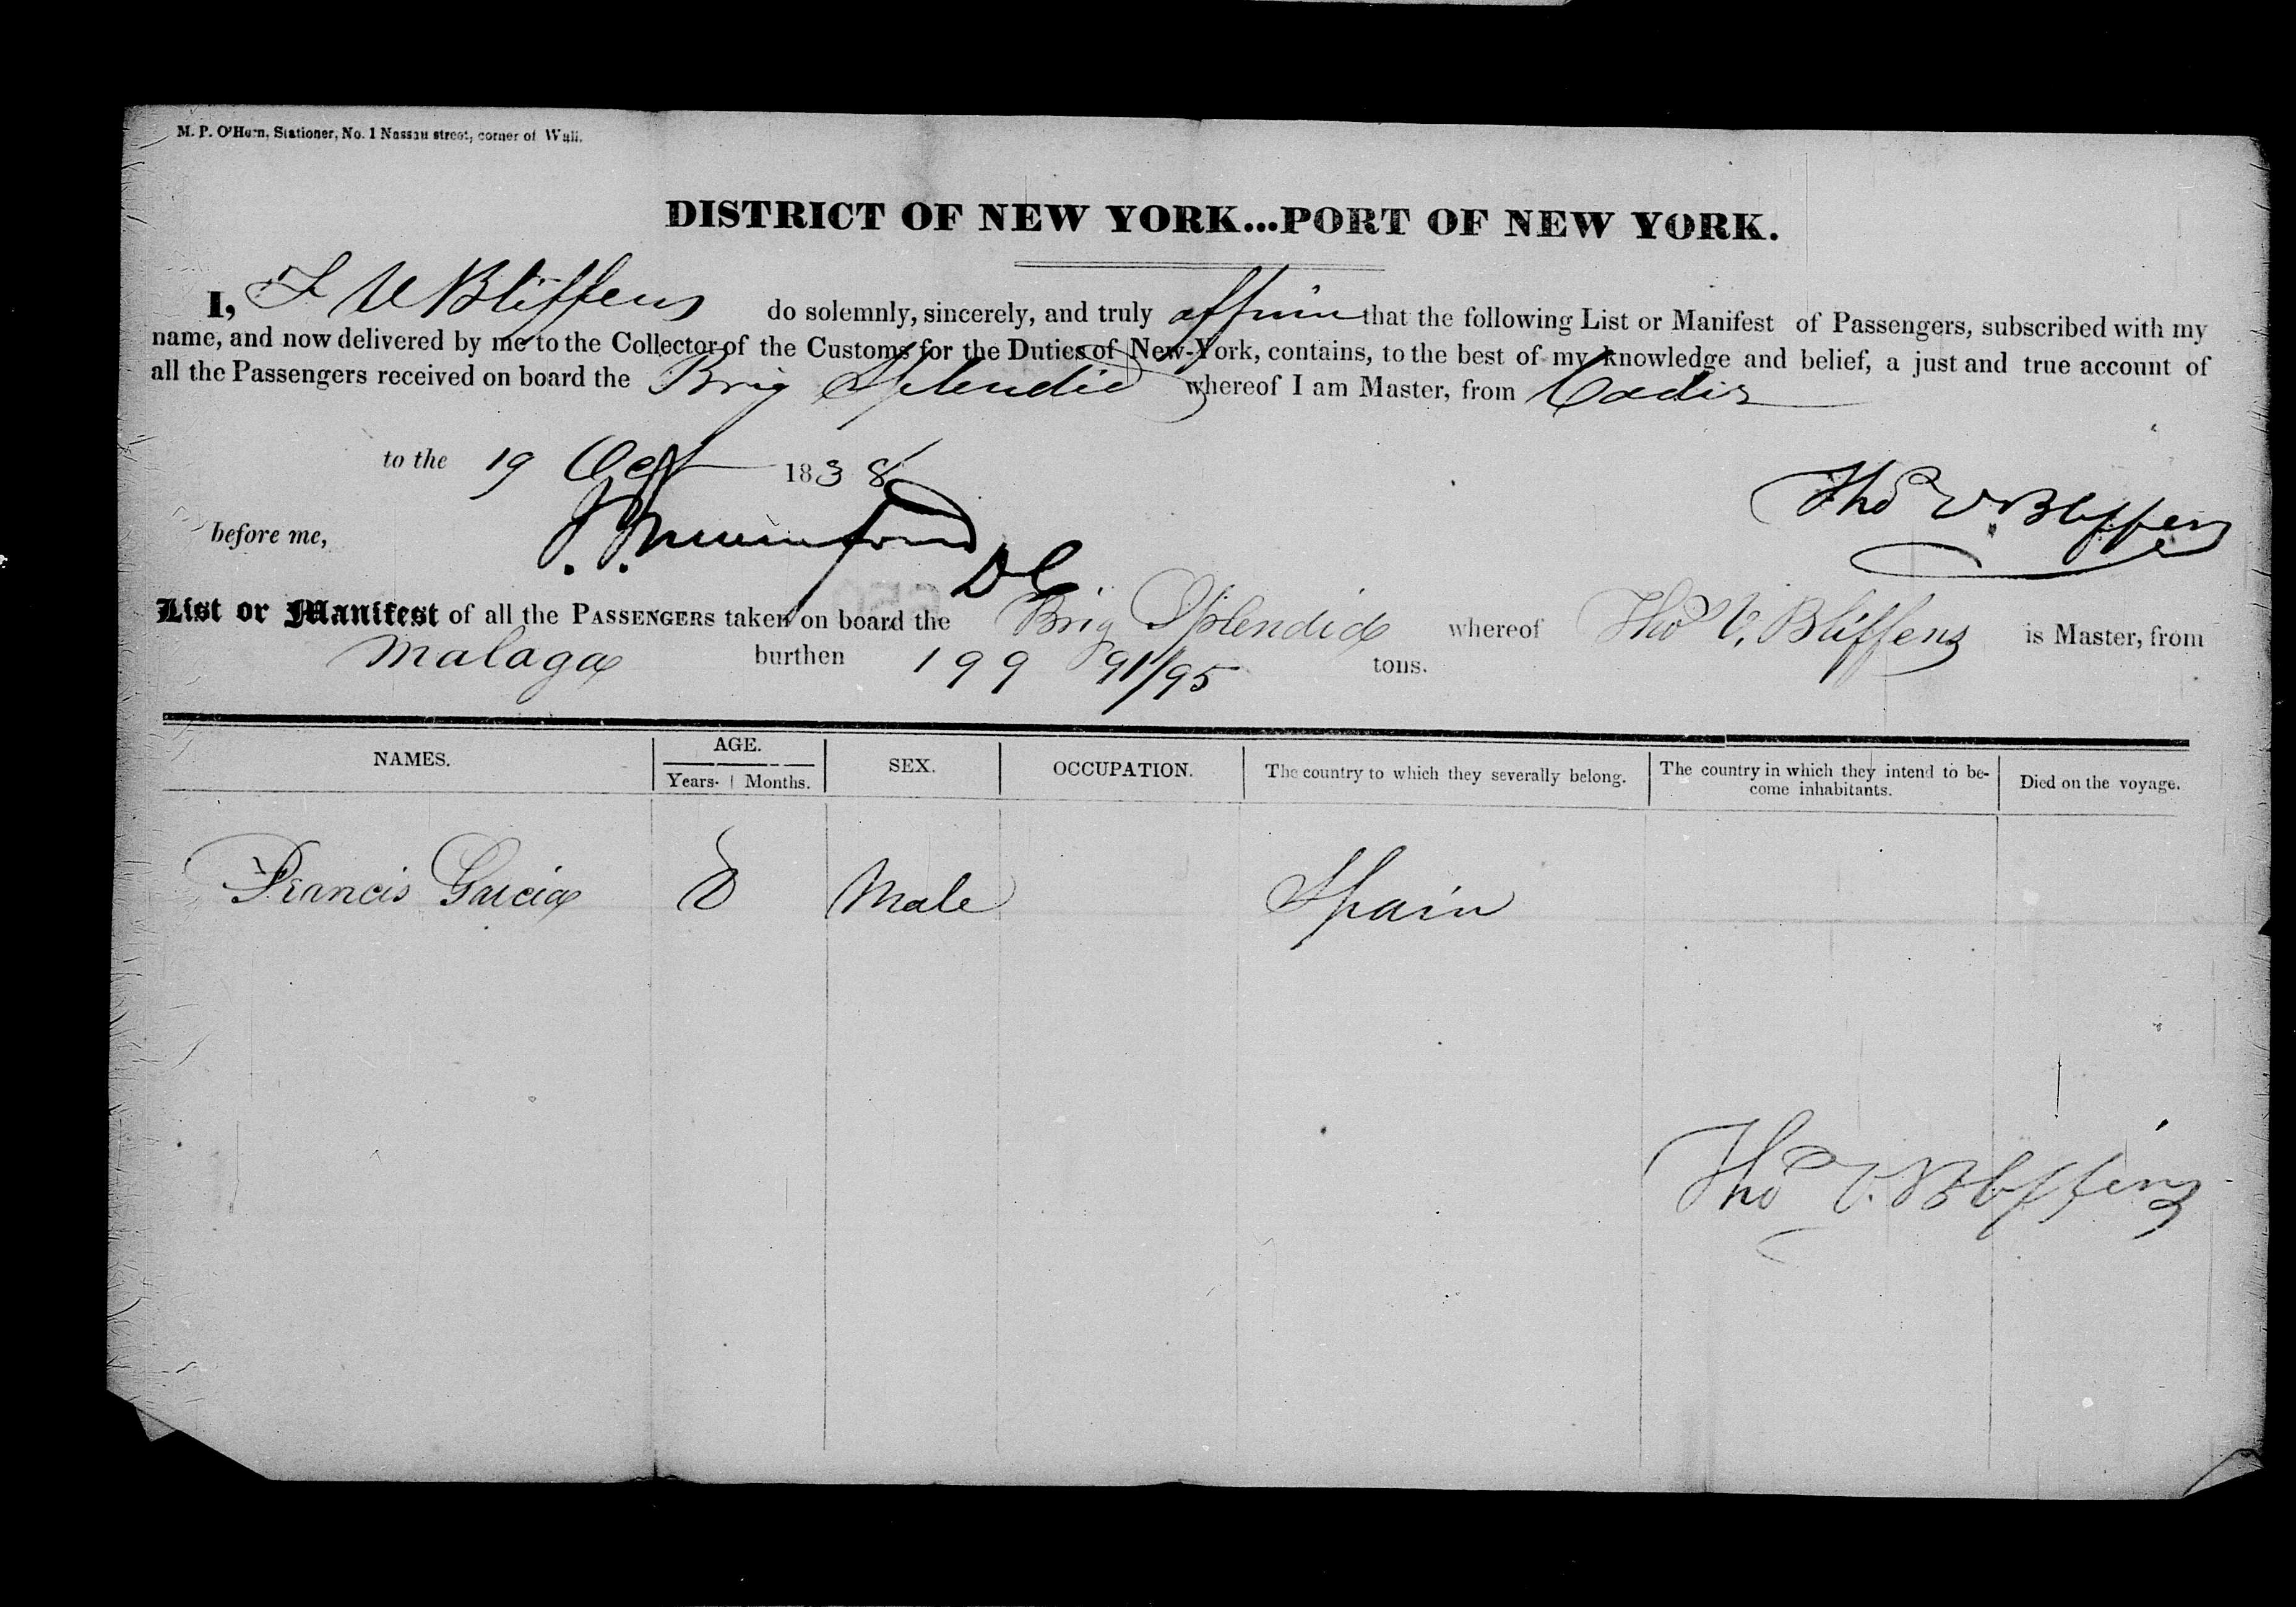 M. P. O'Hern, Stationer, No. 1 Nassau street, corner of Wall.
DISTRICT OF NEW YORK...PORT OF NEW YORK.
I, T V Bliffens do solemnly, sincerely, and truly affirm that the following List or Manifest of Passengers, subscribed with my
name, and now delivered by me to the Collector of the Customs for the Duties of New-York, contains, to the best of my knowledge and belief, a just and true account of
all the Passengers received on board the Brig Splendid whereof I am Master, from Cadiz
to the 19 Oct 1838
Thos V. Bliffens
before me,
D C
List or Manifest of all the PASSENGERS taken on board the Brig Splendid whereof Thos V. Bliffens is Master, from
Malaga burthen 199 91/95 tons.
NAMES. AGE. SEX. OCCUPATION. The country to which they severally belong. The country in which they intend to be- Died on the voyage.
Years. Months. come inhabitants.
Francis Garcia 8 Male Spain
Thos V. Bliffens